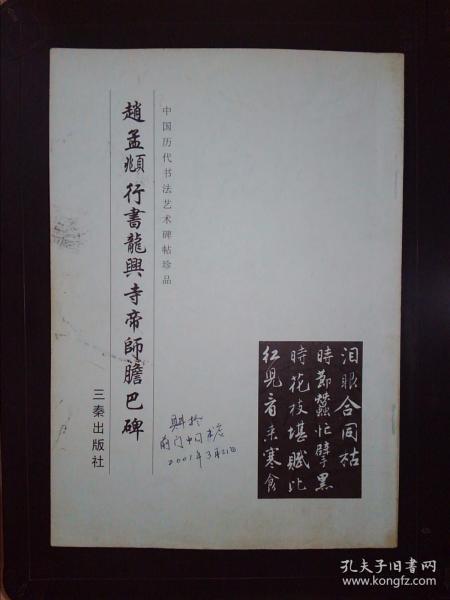 中国历代书法艺术碑帖珍品
趙孟頫行書龍興寺帝師膽巴碑
三秦出版社
泪眼合同枯
時節蠶忙擘黑
時花枝堪賦比
紅兒看來寒食
購於
前门中国书店
2001年3月21日
孔夫子旧书网
www.kongfz.com